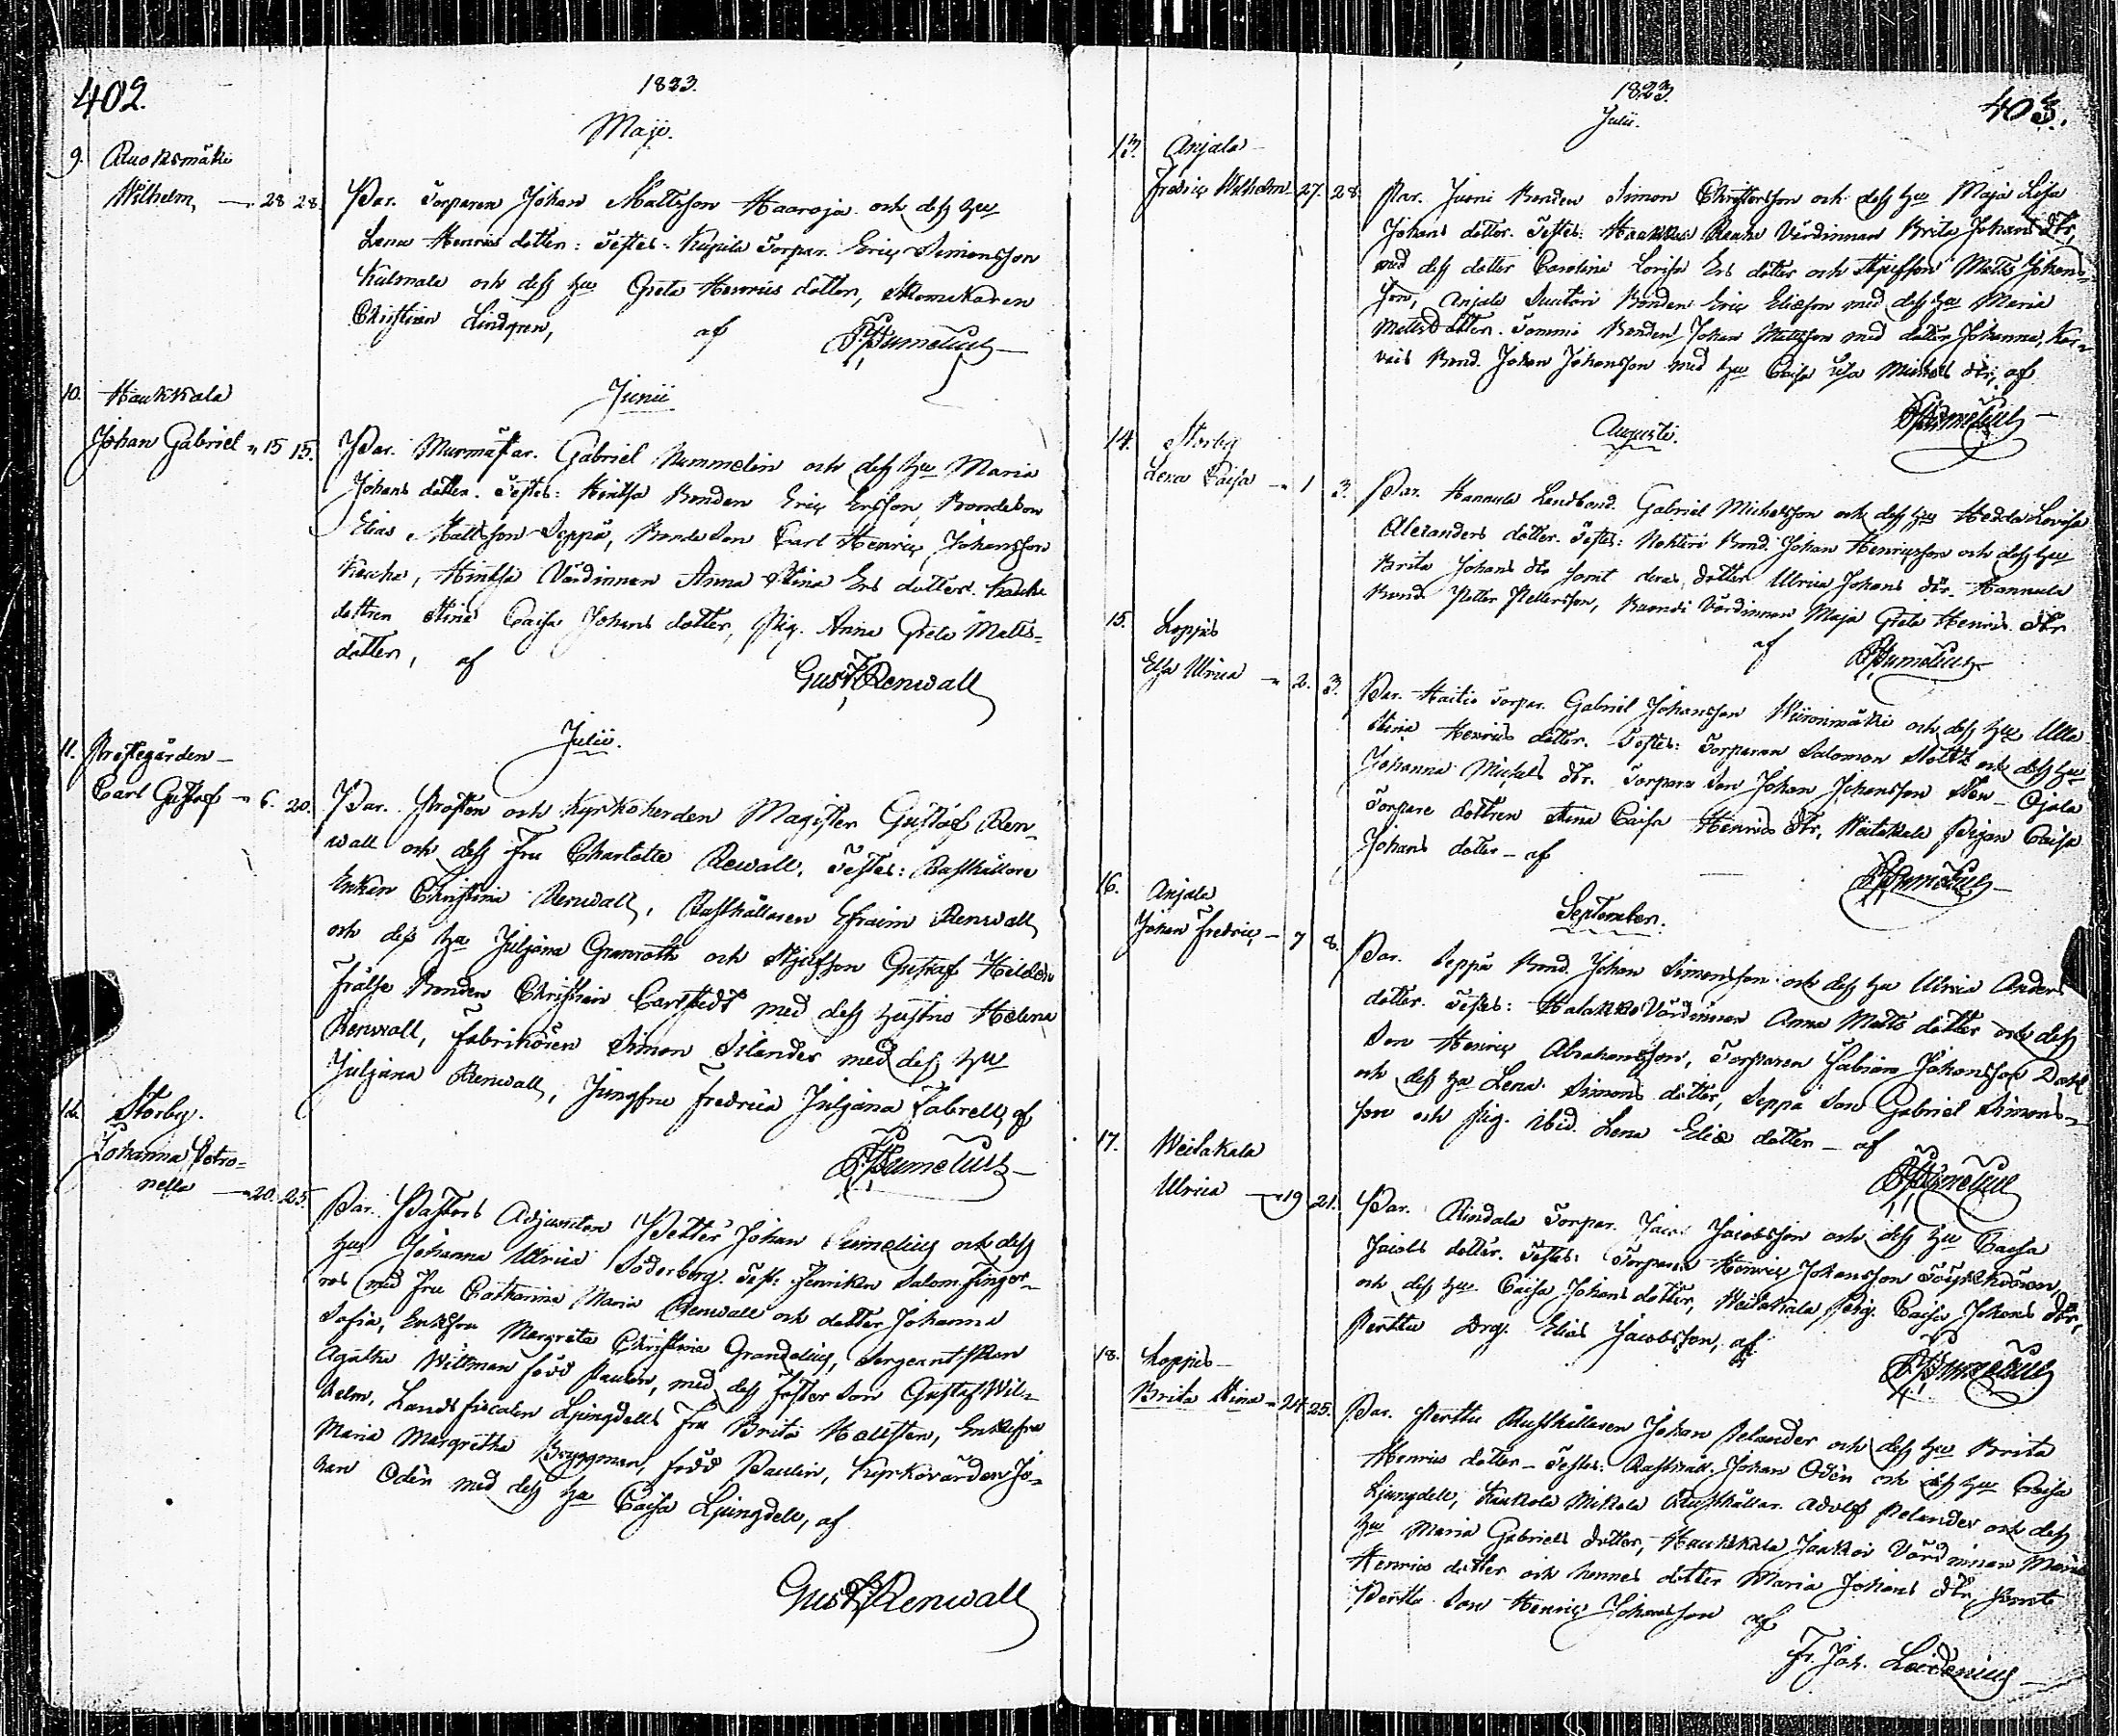 402.
1823.
Maji.
9. Ruoksmäki
Wilhelm, — 28 28.
Par. Torparen Johan Mattsson Haaroja och dess hu
Lena Henrics dotter: Testes: Kupila Torpar. Eric Simonsson
Kulmala och dess hu Greta Henrics dotter, Skomakaren
Christian Lindgren,
af PJPumelius
Junii
10. Haukkala
Johan Gabriel " 15 15.
Par. Murmästar. Gabriel Nummelin och dess hu Maria
Johans dotter. Testes: Hintsa Bonden Eric Ersson, Bondeson
Elias Mattsson Seppä, Bonde Son Carl Henric Johansson
Kacha, Hintsa Värdinnan Anna Stina Ers dotter.
dottren Stina Caisa Johans dotter, Pig. Anna Greta Matts-
dotter, af
Gust. Renwall
Julii.
11. Prostegården —
Carl Gustaf — 6. 20.
Par. Prosten och Kyrkoherden Magister Gustaf Ren-
wall och dess Fru Charlotta Rewall, Testes: Rusthållare
Enkan Christina Renwall, Rusthållaren Efraim Renwall
och dess hu Juljana Granroth och Stjufson Gustaf Hildén
Frälse Bonden Christian Carlstedt med dess hustru Helena
Renwall, Fabrikören Simon Selander med dess hu
Juljana Renwall, Jungfru Fredrica Juljana Fabrell, af
PJPumelius
12. Storby.
Johanna Petro-
nella — 20. 25.
Par. Pastors Adjuncten Petter Johan Pumelius och dess
hu Johanna Ulrica Söderberg. Test: Fenriken Salom. Finger-
roos med Fru Catharina Maria Renwall och dotter Johanna
Sofia, Enkefru Margreta Christina Grandelius, Sergeantskan
Agatha Wittman född Paulin, med dess foster Son Gustaf Wil-
helm, Landsfiscalen Ljungdells Fru Brita Hallsten, Enkefru
Maria Margretha Bryggman, född Paulin, Kyrkovärden Jo-
han Odén med dess hu Caisa Ljungdell, af
Gust. Renwall
1823.
Julii.
403.
13. Anjala —
Fredric Wilhelm 27. 28.
Par. Jusni Bonden Simon Christersson och dess hu Maja Lisa
Johans dotter. Testes: Värdinnan Brita Johans dtr,
med dess dotter Carolina Lovisa Ers dotter och Stjufson Matts Johans-
son, Anjala Suutari Bonden Eric Eliæson med dess hu Maria
Mattsdotter. Tommi Bonden Johan Mattsson med dotter Johanna, Kar-
vais Bond. Johan Johansson med hu Caisa Lisa Michels dtr, af
PJPumelius
Augusti.
14. Storby
Lena Caisa — 1 3.
Par. Hannula Landbond. Gabriel Michelsson och dess hu Hedda Lovisa
Alexanders dotter. Testes: Nohteri Bond. Johan Henricsson och dess hu
Brita Johans dtr samt deras dotter Ulrica Johans dtr. Hannula
Bond. Petter Pettersson, Värdinnan Maja Greta Henrics dtr
af PJPumelius
15. Loppis
Elsa Ulrica — 2. 3.
Par. Haitis Torpar. Gabriel Johansson Wiironmäki och dess hu Ulla
Stina Henrics dotter. Testes: Torparen Salomon Stoltz och dess hu
Johanna Michels dtr. Torpare Son Johan Johansson Sten - Ojala
Torpare dottren Stina Caisa Henrics dtr, Weitakala Pigan Caisa
Johans dotter — af
PJPumelius
September.
16. Anjala
Johan Fredric, — 7 8.
Par. Seppä Bond. Johan Simonsson och dess hu Ulrica Anders
dotter. Testes: Halakka Värdinnan Anna Matts dotter och dess
Son Henric Abrahamsson, Torparen Fabian Johansson Dahl
och dess hu Lena Simons dotter, Seppä Son Gabriel Simons-
son och Pig. ibid. Lena Eliæ dotter — af
PJPumelius
17. Weitakala
Ulrica — 19 21.
Par. Rindala Torpar. Jacob Jacobsson och dess hu Caisa
Jacobs dotter. Testes: Torparen Henric Johansson
och dess hu Caisa Johans dotter, Weitakala Pig. Caisa Johans dtr,
Perttu Drg. Elias Jacobsson, af
PJPumelius
18. Loppis —
Brita Stina — 24 25.
Par. Perttu Rusthållaren Johan Pelander och dess hu Brita
Henrics dotter — Testes: Rusthåll. Johan Odén och dess hu Caisa
Ljungdell, Kaukola Mikola Rusthållar. Adolf Pelander och dess
hu Maria Gabriels dotter, Haukkala Jaakoi Värdinnan Maria
Henrics dotter och hennes dotter Maria Johans dtr, samt
Perttu Son Henric Johansson af
Fr. Joh. Lucenius